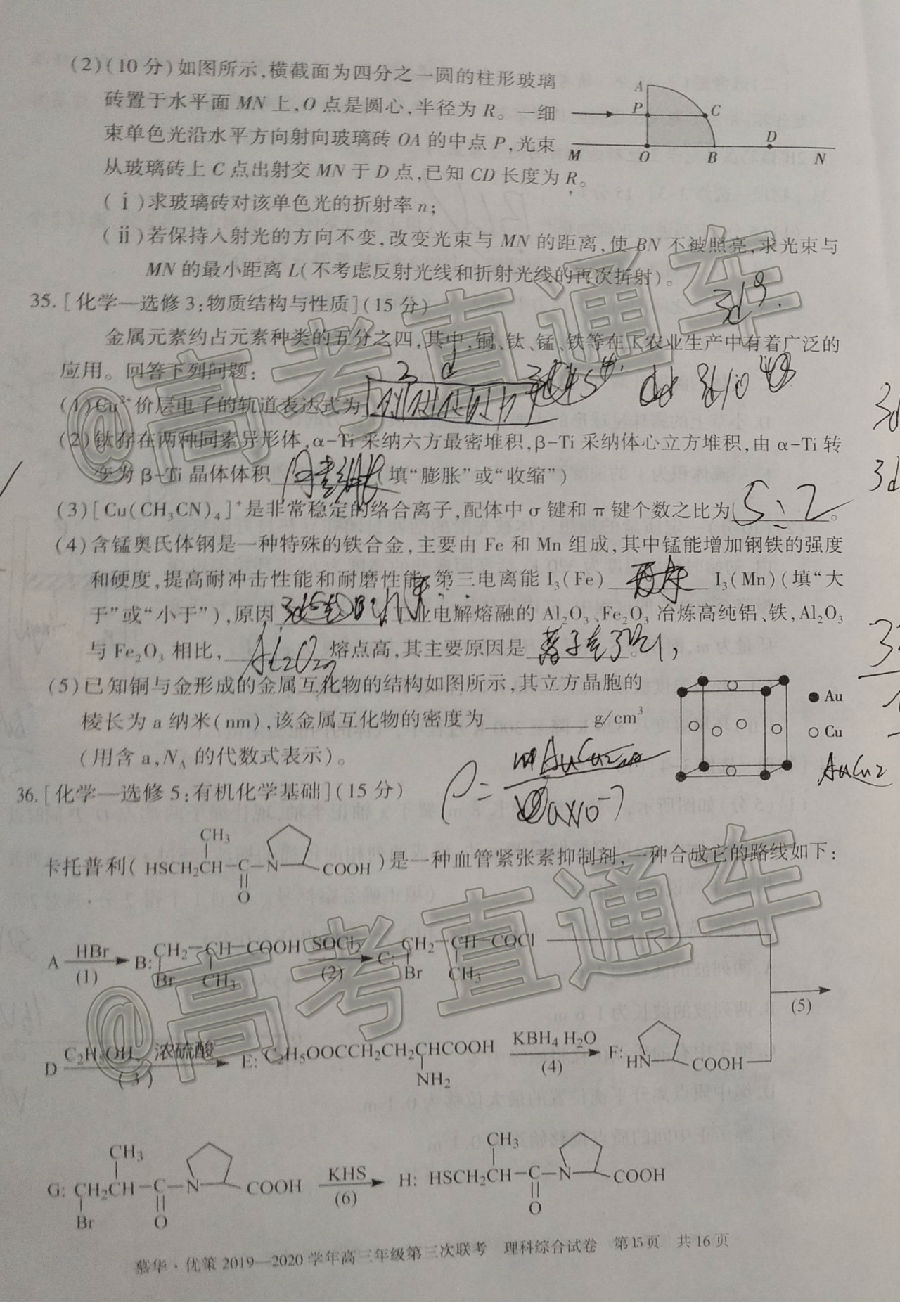 (2)(10分)如图所示,横截面为四分之一圆的柱形玻璃
砖置于水平面MN上,O点是圆心,半径为R。一细
束单色光沿水平方向射向玻璃砖OA的中点P,光束
从玻璃砖上C点出射交MN于D点,已知CD长度为R。
A
P
C
D
M
O
B
N
(ⅰ)求玻璃砖对该单色光的折射率n;
(ⅱ)若保持入射光的方向不变,改变光束与MN的距离,使BN不被照亮,求光束与
MN的最小距离L(不考虑反射光线和折射光线的再次折射)。
35.[化学—选修3:物质结构与性质](15分)
3d9.
金属元素约占元素种类的五分之四,其中,铜、钛、锰、铁等在工农业生产中有着广泛的
应用。回答下列问题:
(1)Cu2+价层电子的轨道表达式为
(2)钛存在两种同素异形体,α-Ti采纳六方最密堆积,β-Ti采纳体心立方堆积,由α-Ti转
变为β-Ti晶体体积 (填“膨胀”或“收缩”)
(3)[Cu(CH3CN)4]+是非常稳定的络合离子,配体中σ键和π键个数之比为 5:2 。
(4)含锰奥氏体钢是一种特殊的铁合金,主要由Fe和Mn组成,其中锰能增加钢铁的强度
和硬度,提高耐冲击性能和耐磨性能。第三电离能I3(Fe) I3(Mn)(填“大
于”或“小于”),原因 业电解熔融的Al2O3、Fe2O3冶炼高纯铝、铁,Al2O3
与Fe2O3相比, Al2O3 熔点高,其主要原因是
(5)已知铜与金形成的金属互化物的结构如图所示,其立方晶胞的
棱长为a纳米(nm),该金属互化物的密度为________g/cm3
(用含a,NA的代数式表示)。
Au
Cu
AuCu2
36.[化学—选修5:有机化学基础](15分)
ρ=
卡托普利( HSCH2CH-C-N COOH )是一种血管紧张素抑制剂,一种合成它的路线如下:
CH3
O
A HBr (1) B: CH2-CH-COOH SOCl2 (2) C: CH2-CH-COCl
Br CH3 Br CH3
(5)
D C2H5OH、浓硫酸 (3) E: C2H5OOCCH2CH2CHCOOH KBH4 H2O (4) F: HN COOH
NH2
CH3 CH3
G: CH2CH-C-N COOH KHS (6) H: HSCH2CH-C-N COOH
Br O O
慕华·优策2019—2020学年高三年级第三次联考 理科综合试卷 第15页 共16页
@高考直通车
@高考直通车